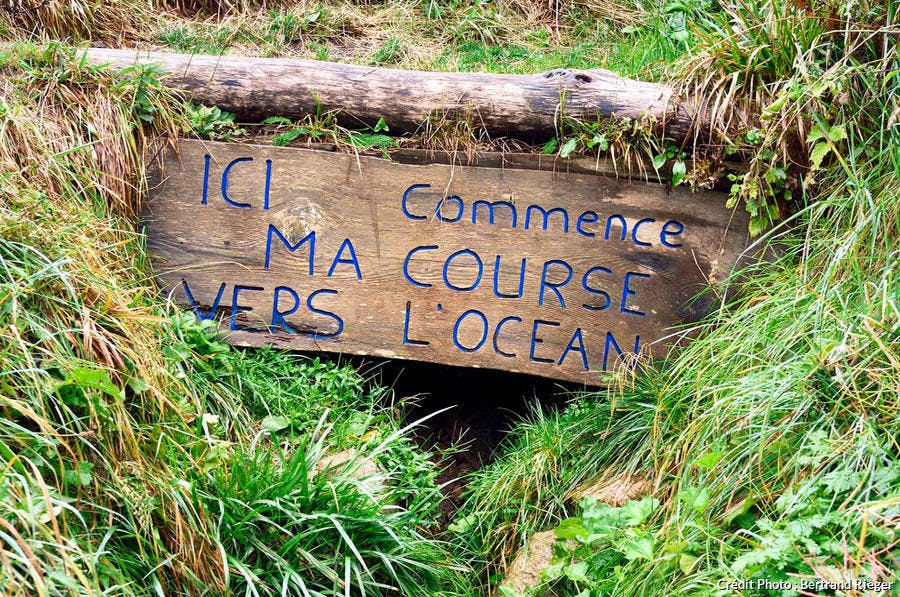 ICI Commence
MA COURSE
VERS L'OCEAN
Crédit Photo : Bertrand Rieger